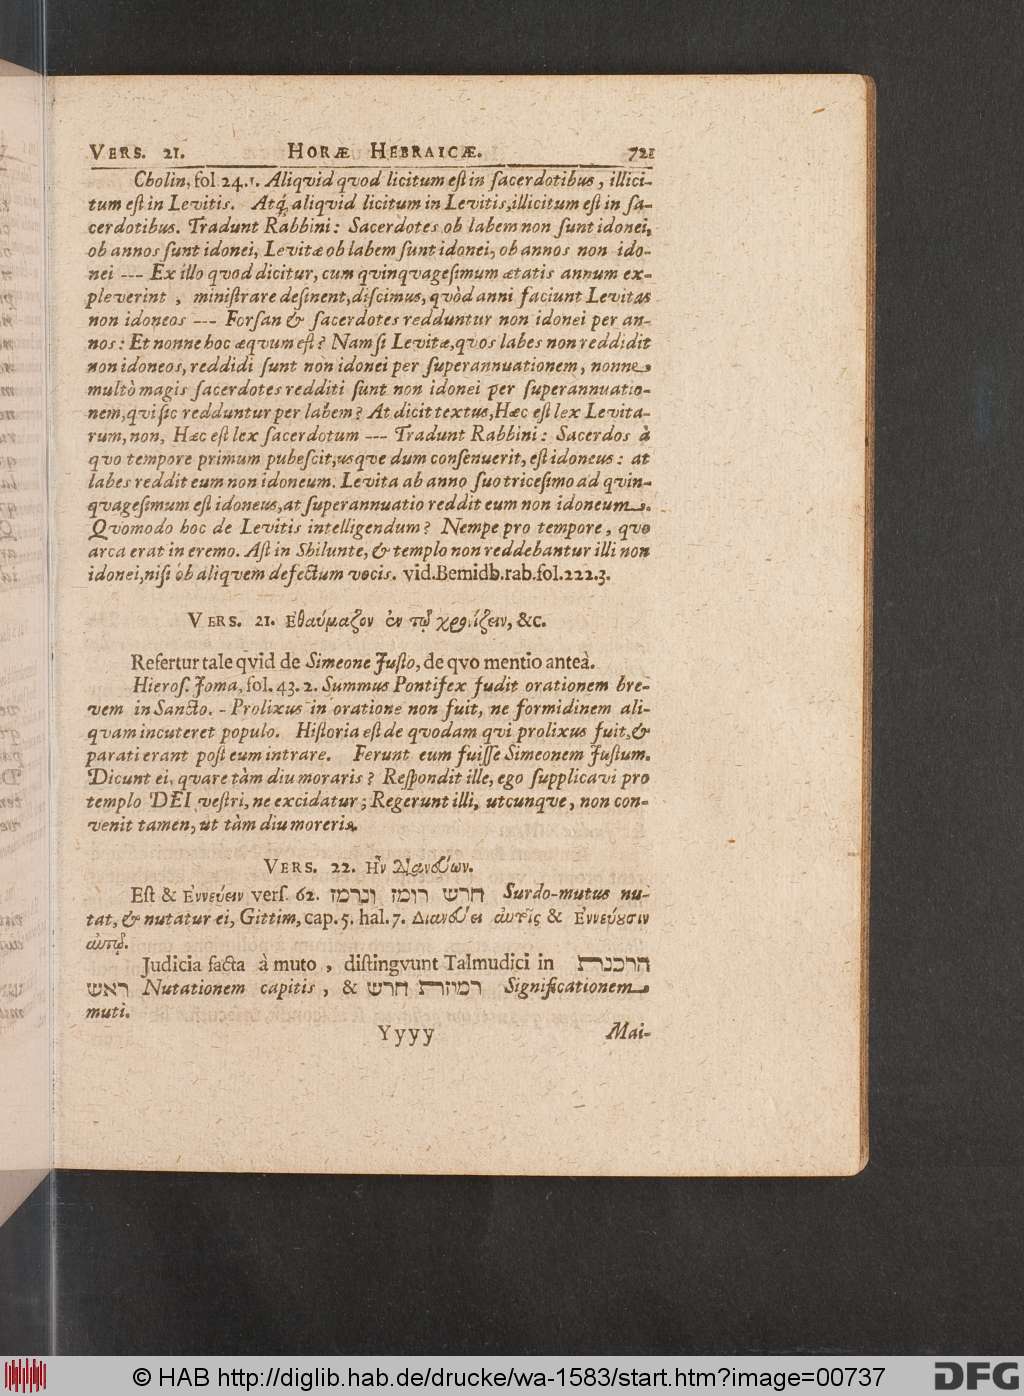 VERS. 21. HORÆ HEBRAICÆ. 721
Cholin, fol 24.1. Aliqvid qvod licitum est in sacerdotibus, illici-
tum est in Levitis. Atq́; aliqvid licitum in Levitis, illicitum est in sa-
cerdotibus. Tradunt Rabbini: Sacerdotes ob labem non sunt idonei,
ob annos sunt idonei, Levitæ ob labem sunt idonei, ob annos non ido-
nei --- Ex illo qvod dicitur, cum qvinqvagesimum ætatis annum ex-
pleverint, ministrare desinent, discimus, qvòd anni faciunt Levitas
non idoneos --- Forsan & sacerdotes redduntur non idonei per an-
nos: Et nonne hoc æqvum est? Nam si Levitæ, qvos labes non reddidit
non idoneos, reddidi sunt non idonei per superannuationem, nonne
multò magis sacerdotes redditi sunt non idonei per superannuatio-
nem, qvi sic redduntur per labem? At dicit textus, Hæc est lex Levita-
rum, non, Hæc est lex sacerdotum --- Tradunt Rabbini: Sacerdos à
qvo tempore primum pubescit, usqve dum consenuerit, est idoneus: at
labes reddit eum non idoneum. Levita ab anno suo tricesimo ad qvin-
qvagesimum est idoneus, at superannuatio reddit eum non idoneum.
Qvomodo hoc de Levitis intelligendum? Nempe pro tempore, qvo
arca erat in eremo. Ast in Shilunte, & templo non reddebantur illi non
idonei, nisi ob aliqvem defectum vocis. vid. Bemidb. rab. fol. 222. 3.
VERS. 21. Εθαύμαζον ἐν τῷ χρονίζειν, &c.
Refertur tale qvid de Simeone Justo, de qvo mentio anteà.
Hieros. Joma, fol. 43. 2. Summus Pontifex fudit orationem bre-
vem in Sancto. - Prolixus in oratione non fuit, ne formidinem ali-
qvam incuteret populo. Historia est de qvodam qvi prolixus fuit, &
parati erant post eum intrare. Ferunt eum fuisse Simeonem Justum.
Dicunt ei, qvare tàm diu moraris? Respondit ille, ego supplicavi pro
templo DEI vestri, ne excidatur; Regerunt illi, utcunqve, non con-
venit tamen, ut tàm diu moreris.
VERS. 22. Ην Διανεύων.
Est & Εννεύειν vers. 62. חרש רומז ונרמז Surdo-mutus nu-
tat, & nutatur ei, Gittim, cap. 5. hal. 7. Διανεύει αὐτοῖς & Εννεύουσιν
αὐτῷ.
Judicia facta à muto, distingvunt Talmudici in הרכנת
ראש Nutationem capitis, & רמיזת חרש Significationem
muti.
Yyyy Mai-
© HAB http://diglib.hab.de/drucke/wa-1583/start.htm?image=00737 DFG